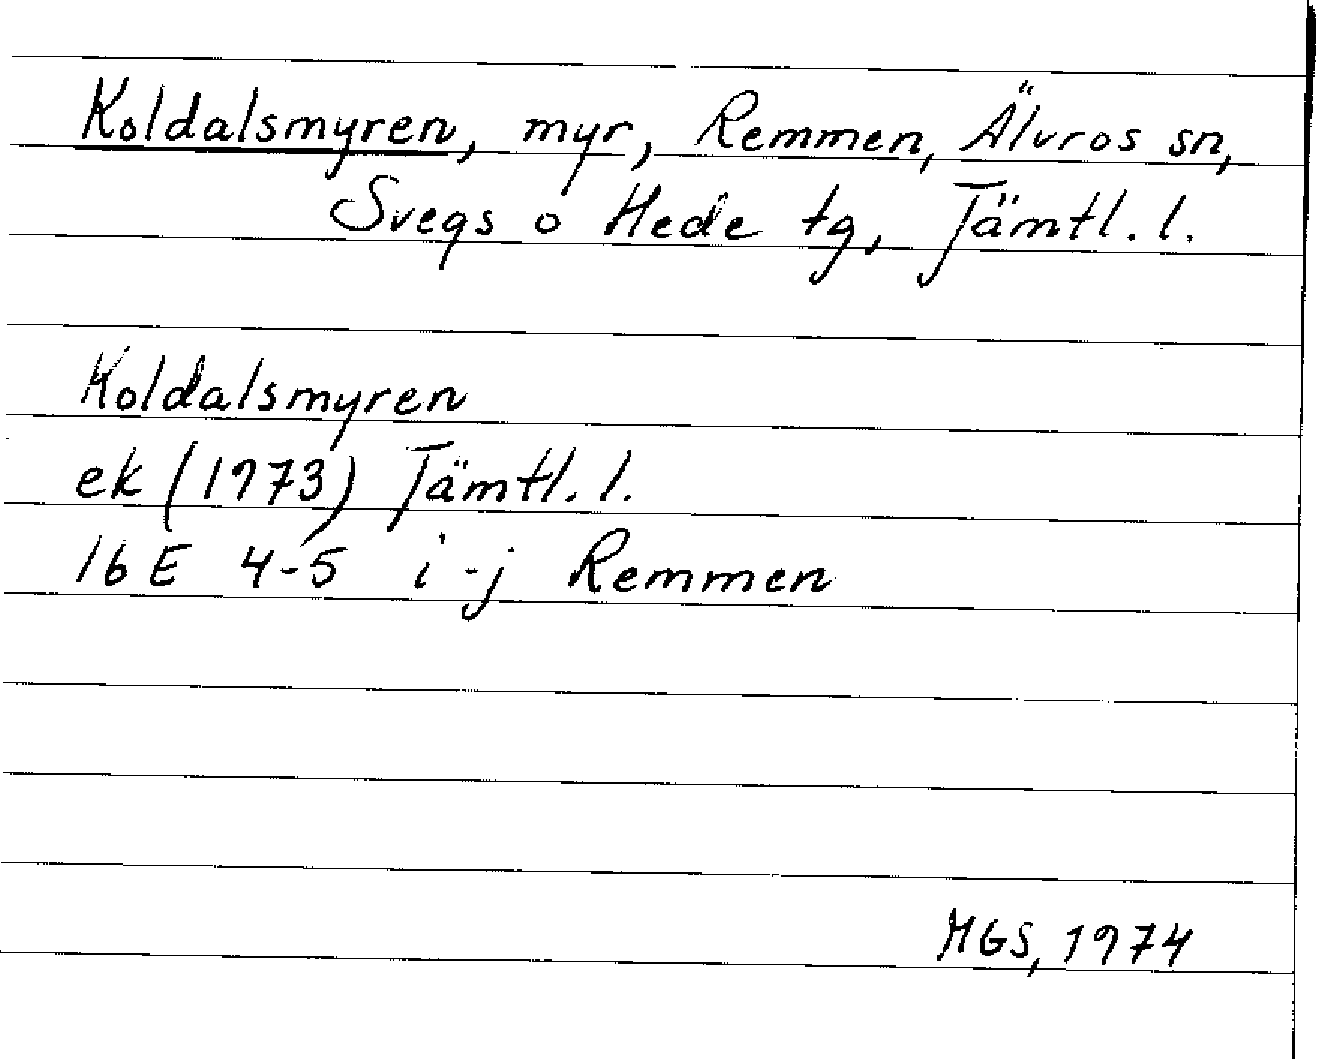 Koldalsmyren, myr, Remmen, Älvros sn,
Svegs o Hede tg, Jämtl. l.
Koldalsmyren
ek (1973) Jämtl. l.
16E 4-5 i-j Remmen
MGS, 1974